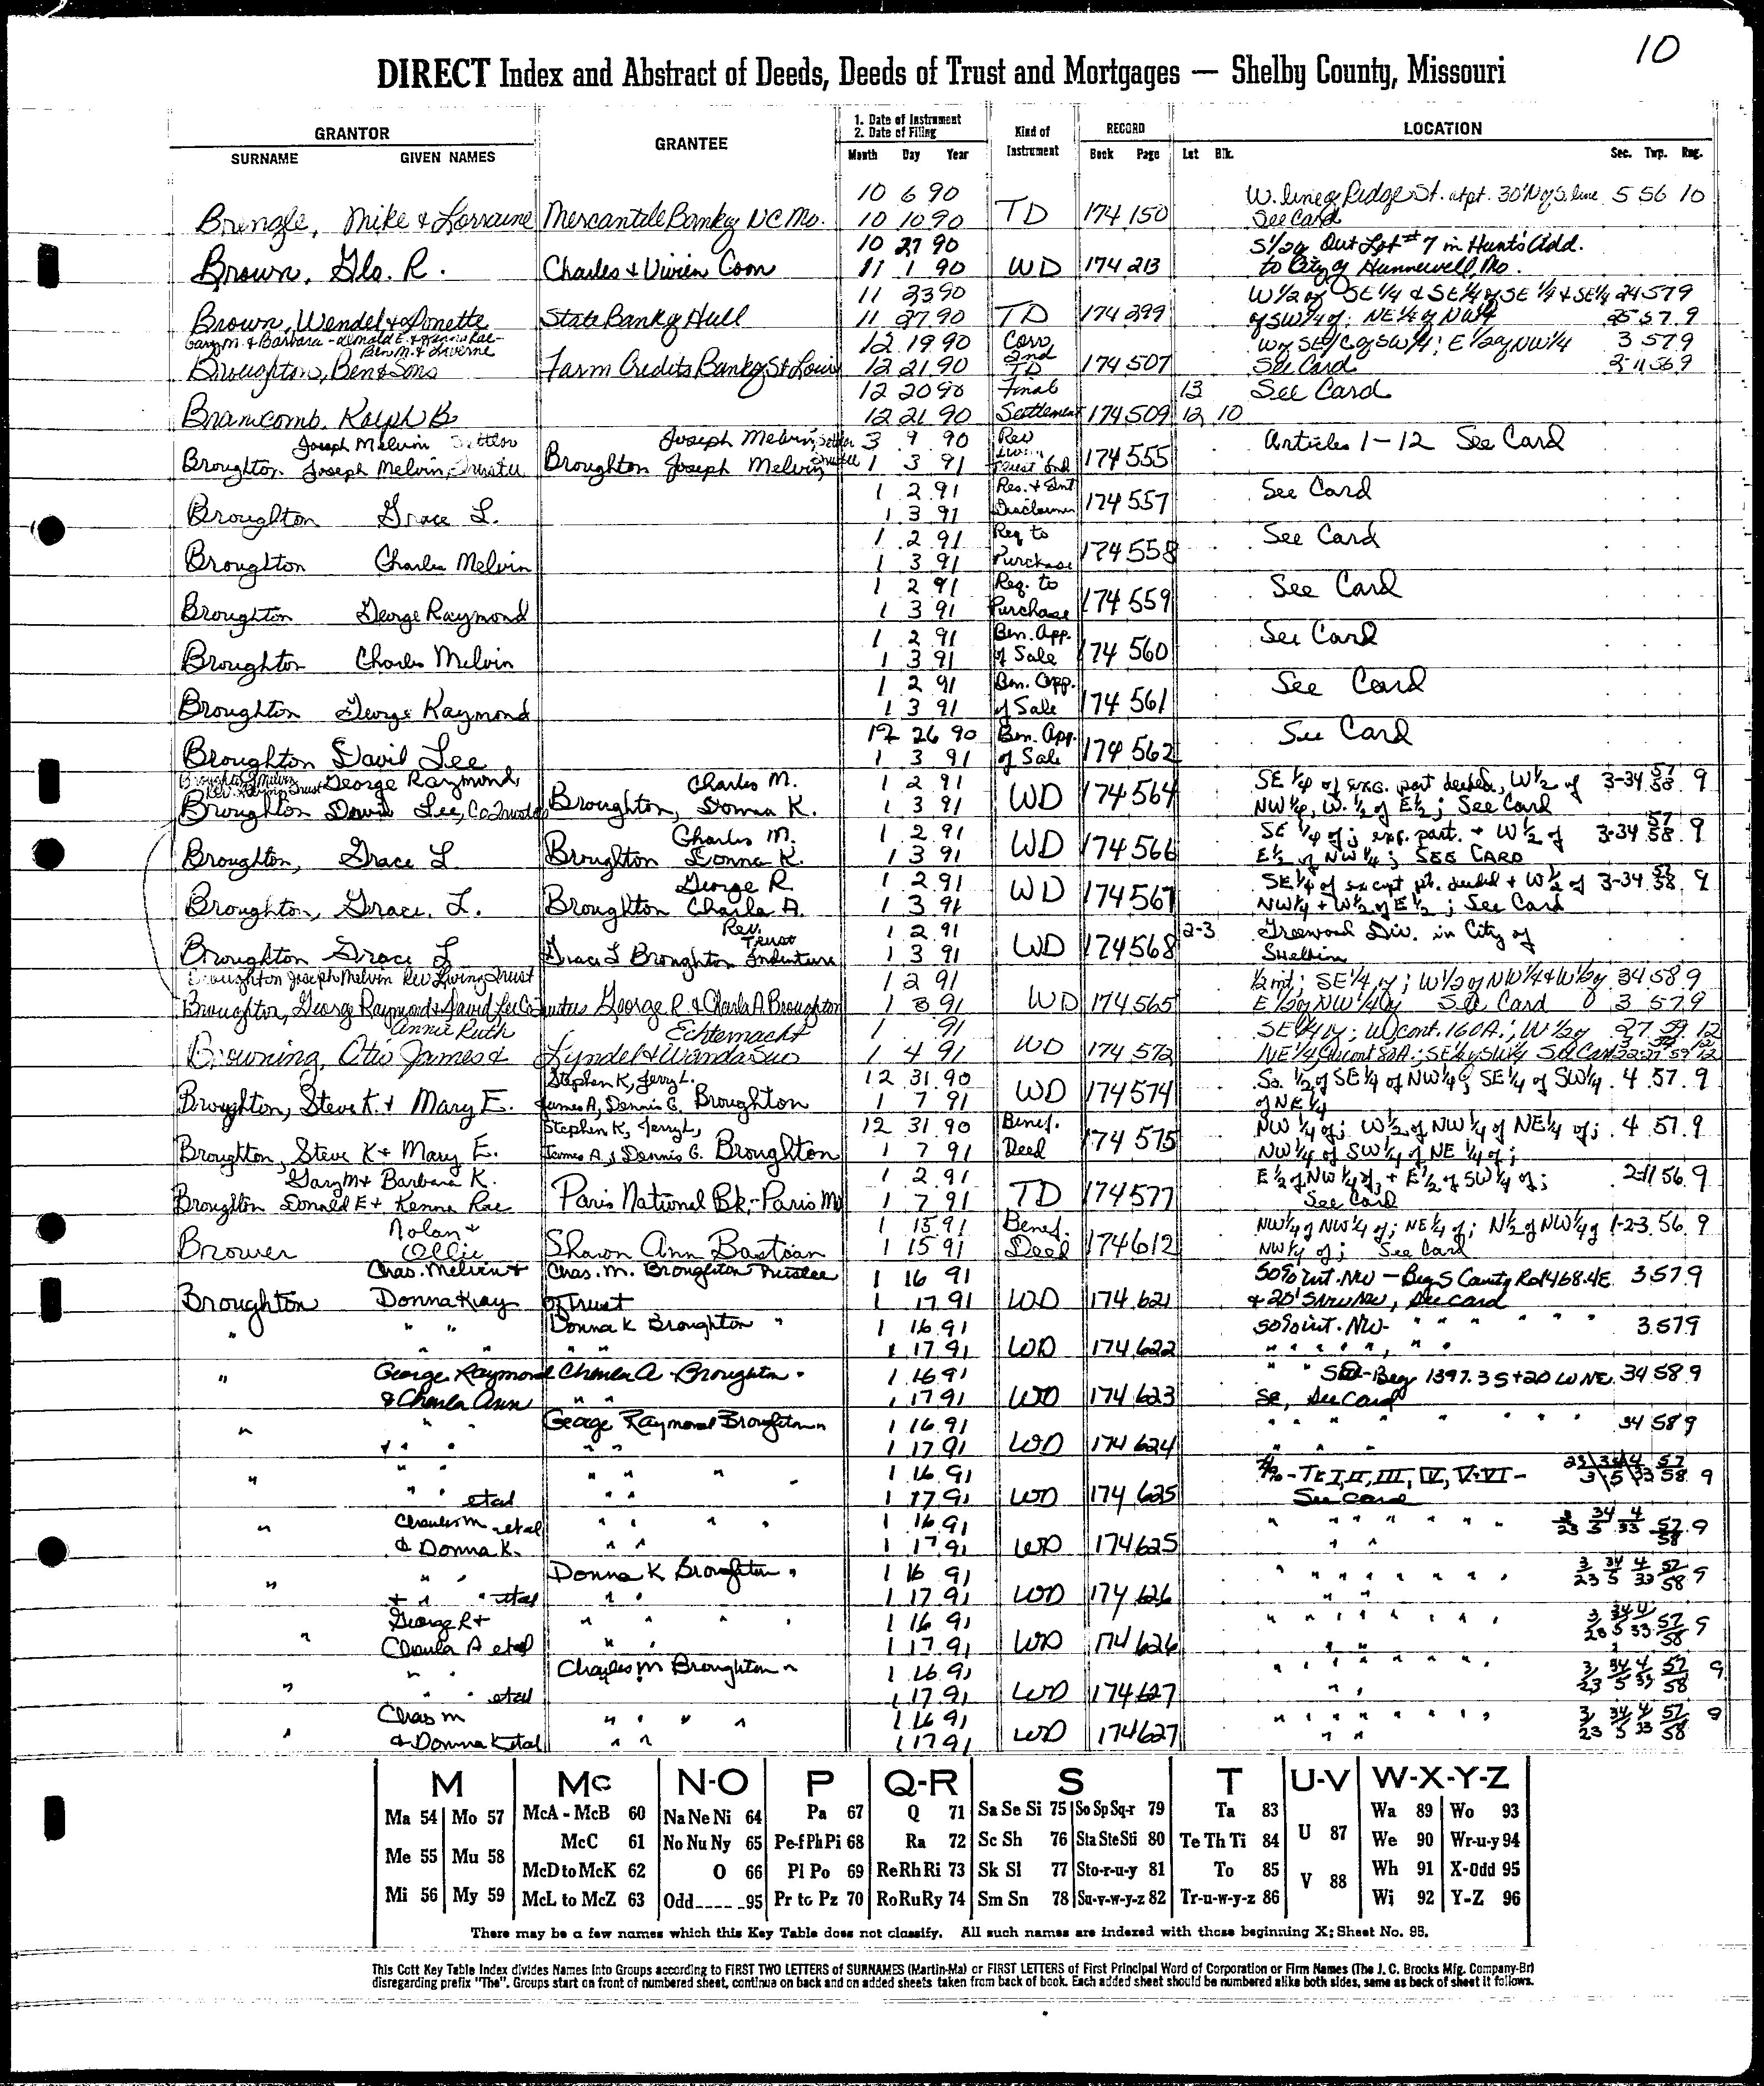 10
DIRECT Index and Abstract of Deeds, Deeds of Trust and Mortgages — Shelby County, Missouri
GRANTOR
SURNAME GIVEN NAMES
GRANTEE
1. Date of Instrument
2. Date of Filing
Month Day Year
Kind of
Instrument
RECORD
Book Page
LOCATION
Lot Blk. Sec. Twp. Rng.
10 6 90 W. line of Ridge St. at pt. 30' N of S. line 5 56 10
Mike & Lorraine Mercantile Bank of NC Mo. 10 10 90 TD 174 150 See Card
10 27 90 S 1/2 of Out Lot #7 in Hunt's Add.
Brown, Glo. R. Charles & Vivien Coon 11 1 90 WD 174 213 to City of Hunnewell, Mo.
11 23 90 W 1/2 of SE 1/4 & SE 1/4 of SE 1/4 & SE 1/4 24 57 9
Brown, Wendel & Donette State Bank of Hull 11 27 90 TD 174 299 of SW 1/4 of; NE 1/4 of NW 1/4 25 57 9
Gary M. & Barbara - Donald E. & Kenna Rae -
Ben M. & Laverne 12 19 90 Corr. 2nd E 1/2 of NW 1/4 3 57 9
Broughton, Ben & Sons Farm Credits Bank of St Louis 12 21 90 TD 174 507 See Card 2-11 56 9
12 20 90 Final 13 See Card
Branscomb, Ralph B 12 21 90 Settlement 174 509 12 10
Joseph Melvin Settlor Joseph Melvin, Settlor 3 9 90 Rev Articles 1-12 See Card
Broughton Joseph Melvin, Trustee Broughton Joseph Melvin, Trustee 1 3 91 Trust Ind 174 555
1 2 91 Res. & Ent See Card
Broughton Grace L. 1 3 91 Disclaimer 174 557
1 2 91 Req to See Card
Broughton Charles Melvin 1 3 91 Purchase 174 558
1 2 91 Req. to See Card
Broughton George Raymond 1 3 91 Purchase 174 559
1 2 91 Ben. App. See Card
Broughton Charles Melvin 1 3 91 of Sale 174 560
1 2 91 Ben. App. See Card
Broughton George Raymond 1 3 91 of Sale 174 561
12 26 90 Ben. App. See Card
Broughton David Lee 1 3 91 of Sale 174 562
George Raymond Charles M. 1 2 91 SE 1/4 of exc. part deeded, W 1/2 of 3-34 57 58 9
Broughton David Lee, Co Trustees Broughton, Donna K. 1 3 91 WD 174 564 NW 1/4, W 1/2 of E 1/2; See Card
Charles M. 1 2 91 SE 1/4 of; exc. part. + W 1/2 of 3-34 57 58 9
Broughton, Grace L Broughton Donna K. 1 3 91 WD 174 566 E 1/2 of NW 1/4; SEE CARD
George R 1 2 91 SE 1/4 of except pt. deeded + W 1/2 of 3-34 57 58 9
Broughton, Grace. L. Broughton Charla A. 1 3 91 WD 174 567 NW 1/4 + W 1/2 of E 1/2; See Card
Rev. Trust 1 2 91 2-3 Greenwood Div. in City of
Broughton Grace L Grace L Broughton Indenture 1 3 91 WD 174 568 Shelbina
Broughton Joseph Melvin Rev Living Trust 1 2 91 1/2 int; SE 1/4 of; W 1/2 of NW 1/4 & W 1/2 of 34 58 9
Broughton, George Raymond & David Lee Co Trustees George R & Charla A Broughton 1 3 91 WD 174 565 E 1/2 of NW 1/4 of See Card 3 57 9
Annie Ruth Echternacht 1 91 SE 1/4 of; W cont. 160 A.; W 1/2 of 27 59 12
Browning, Otis James & Lyndel & Wanda Sue 1 4 91 WD 174 572
Stephen K, Jerry L. 12 31 90 So. 1/2 of SE 1/4 of NW 1/4; SE 1/4 of SW 1/4 4 57 9
Broughton, Steve K. & Mary E. James A, Dennis G. Broughton 1 7 91 WD 174 574 of NE 1/4
Stephen K, Jerry L, 12 31 90 Benef. NW 1/4 of; W 1/2 of NW 1/4 of NE 1/4 of; 4 57 9
Broughton, Steve K + Mary E. James A, Dennis G. Broughton 1 7 91 Deed 174 575 NW 1/4 of SW 1/4 of NE 1/4 of;
Gary M + Barbara K. 1 2 91 E 1/2 of NW 1/4 of, + E 1/2 of SW 1/4 of; 2-11 56 9
Broughton Donald E + Kenna Rae Paris National Bk - Paris Mo 1 7 91 TD 174 577 See Card
Nolan + 1 15 91 Benef. NW 1/4 of NW 1/4 of; NE 1/4 of; N 1/2 of NW 1/4 of 1-2-3 56 9
Brower Ollie Sharon Ann Bastian 1 15 91 Deed 174 612 NW 1/4 of; See Card
Chas. Melvin & Chas. M. Broughton Trustee 1 16 91 50% int. NW - Beg S County Rd 1468.4E 3 57 9
Broughton Donna Kay of Trust 1 17 91 WD 174 621 See card
" " " Donna K Broughton " 1 16 91 50% int. NW - " " " " " 3 57 9
" " " " 1 17 91 WD 174 622 " " " " " "
" George Raymond Charla A. Broughton " 1 16 91 Beg 1397.3 S + 20 W NE 34 58 9
& Charla Ann " " 1 17 91 WD 174 623 SE, See Card
" " " George Raymond Broughton " 1 16 91 " " " " " " " 34 58 9
" " " " " 1 17 91 WD 174 624 " " "
" " " " " " " 1 16 91 - Tr I, II, III, IV, V + VI -
" " etal " " 1 17 91 WD 174 625 See Card
" Charles M etal " " " " 1 16 91 " " " " " " 3/23 34/5 4/33 57/58 9
& Donna K. " " 1 17 91 WD 174 625 " "
" " " Donna K Broughton " 1 16 91 " " " " " " " 3/23 34/5 4/33 57/58 9
+ " " etal " " 1 17 91 WD 174 626 " "
George R + " " " " 1 16 91 " " " " " " 3/23 34/5 4/33 57/58 9
" Charla A etal " " 1 17 91 WD 174 626 " "
" " Charles M Broughton " 1 16 91 " " " " " " 3/23 34/5 4/33 57/58 9
" " " etal 1 17 91 WD 174 627 " "
Chas M " " " " 1 16 91 " " " " " " " 3/23 34/5 4/33 57/58 9
" & Donna K etal " " 1 17 91 WD 174 627 " "
M Mc N-O P Q-R S T U-V W-X-Y-Z
Ma 54 Mo 57 McA - McB 60 Na Ne Ni 64 Pa 67 Q 71 Sa Se Si 75 So Sp Sq-r 79 Ta 83 U 87 Wa 89 Wo 93
Me 55 Mu 58 McC 61 No Nu Ny 65 Pe-f Ph Pi 68 Ra 72 Sc Sh 76 Sta Ste Sti 80 Te Th Ti 84 V 88 We 90 Wr-u-y 94
McD to McK 62 O 66 Pl Po 69 Re Rh Ri 73 Sk Sl 77 Sto-r-u-y 81 To 85 Wh 91 X-Odd 95
Mi 56 My 59 McL to McZ 63 Odd_____95 Pr to Pz 70 Ro Ru Ry 74 Sm Sn 78 Su-v-w-y-z 82 Tr-u-w-y-z 86 Wi 92 Y-Z 96
There may be a few names which this Key Table does not classify. All such names are indexed with those beginning X; Sheet No. 95.
This Cott Key Table Index divides Names into Groups according to FIRST TWO LETTERS of SURNAMES (Martin-Ma) or FIRST LETTERS of First Principal Word of Corporation or Firm Names (The J. C. Brooks Mfg. Company-Br)
disregarding prefix "The". Groups start on front of numbered sheet, continue on back and on added sheets taken from back of book. Each added sheet should be numbered alike both sides, same as back of sheet it follows.